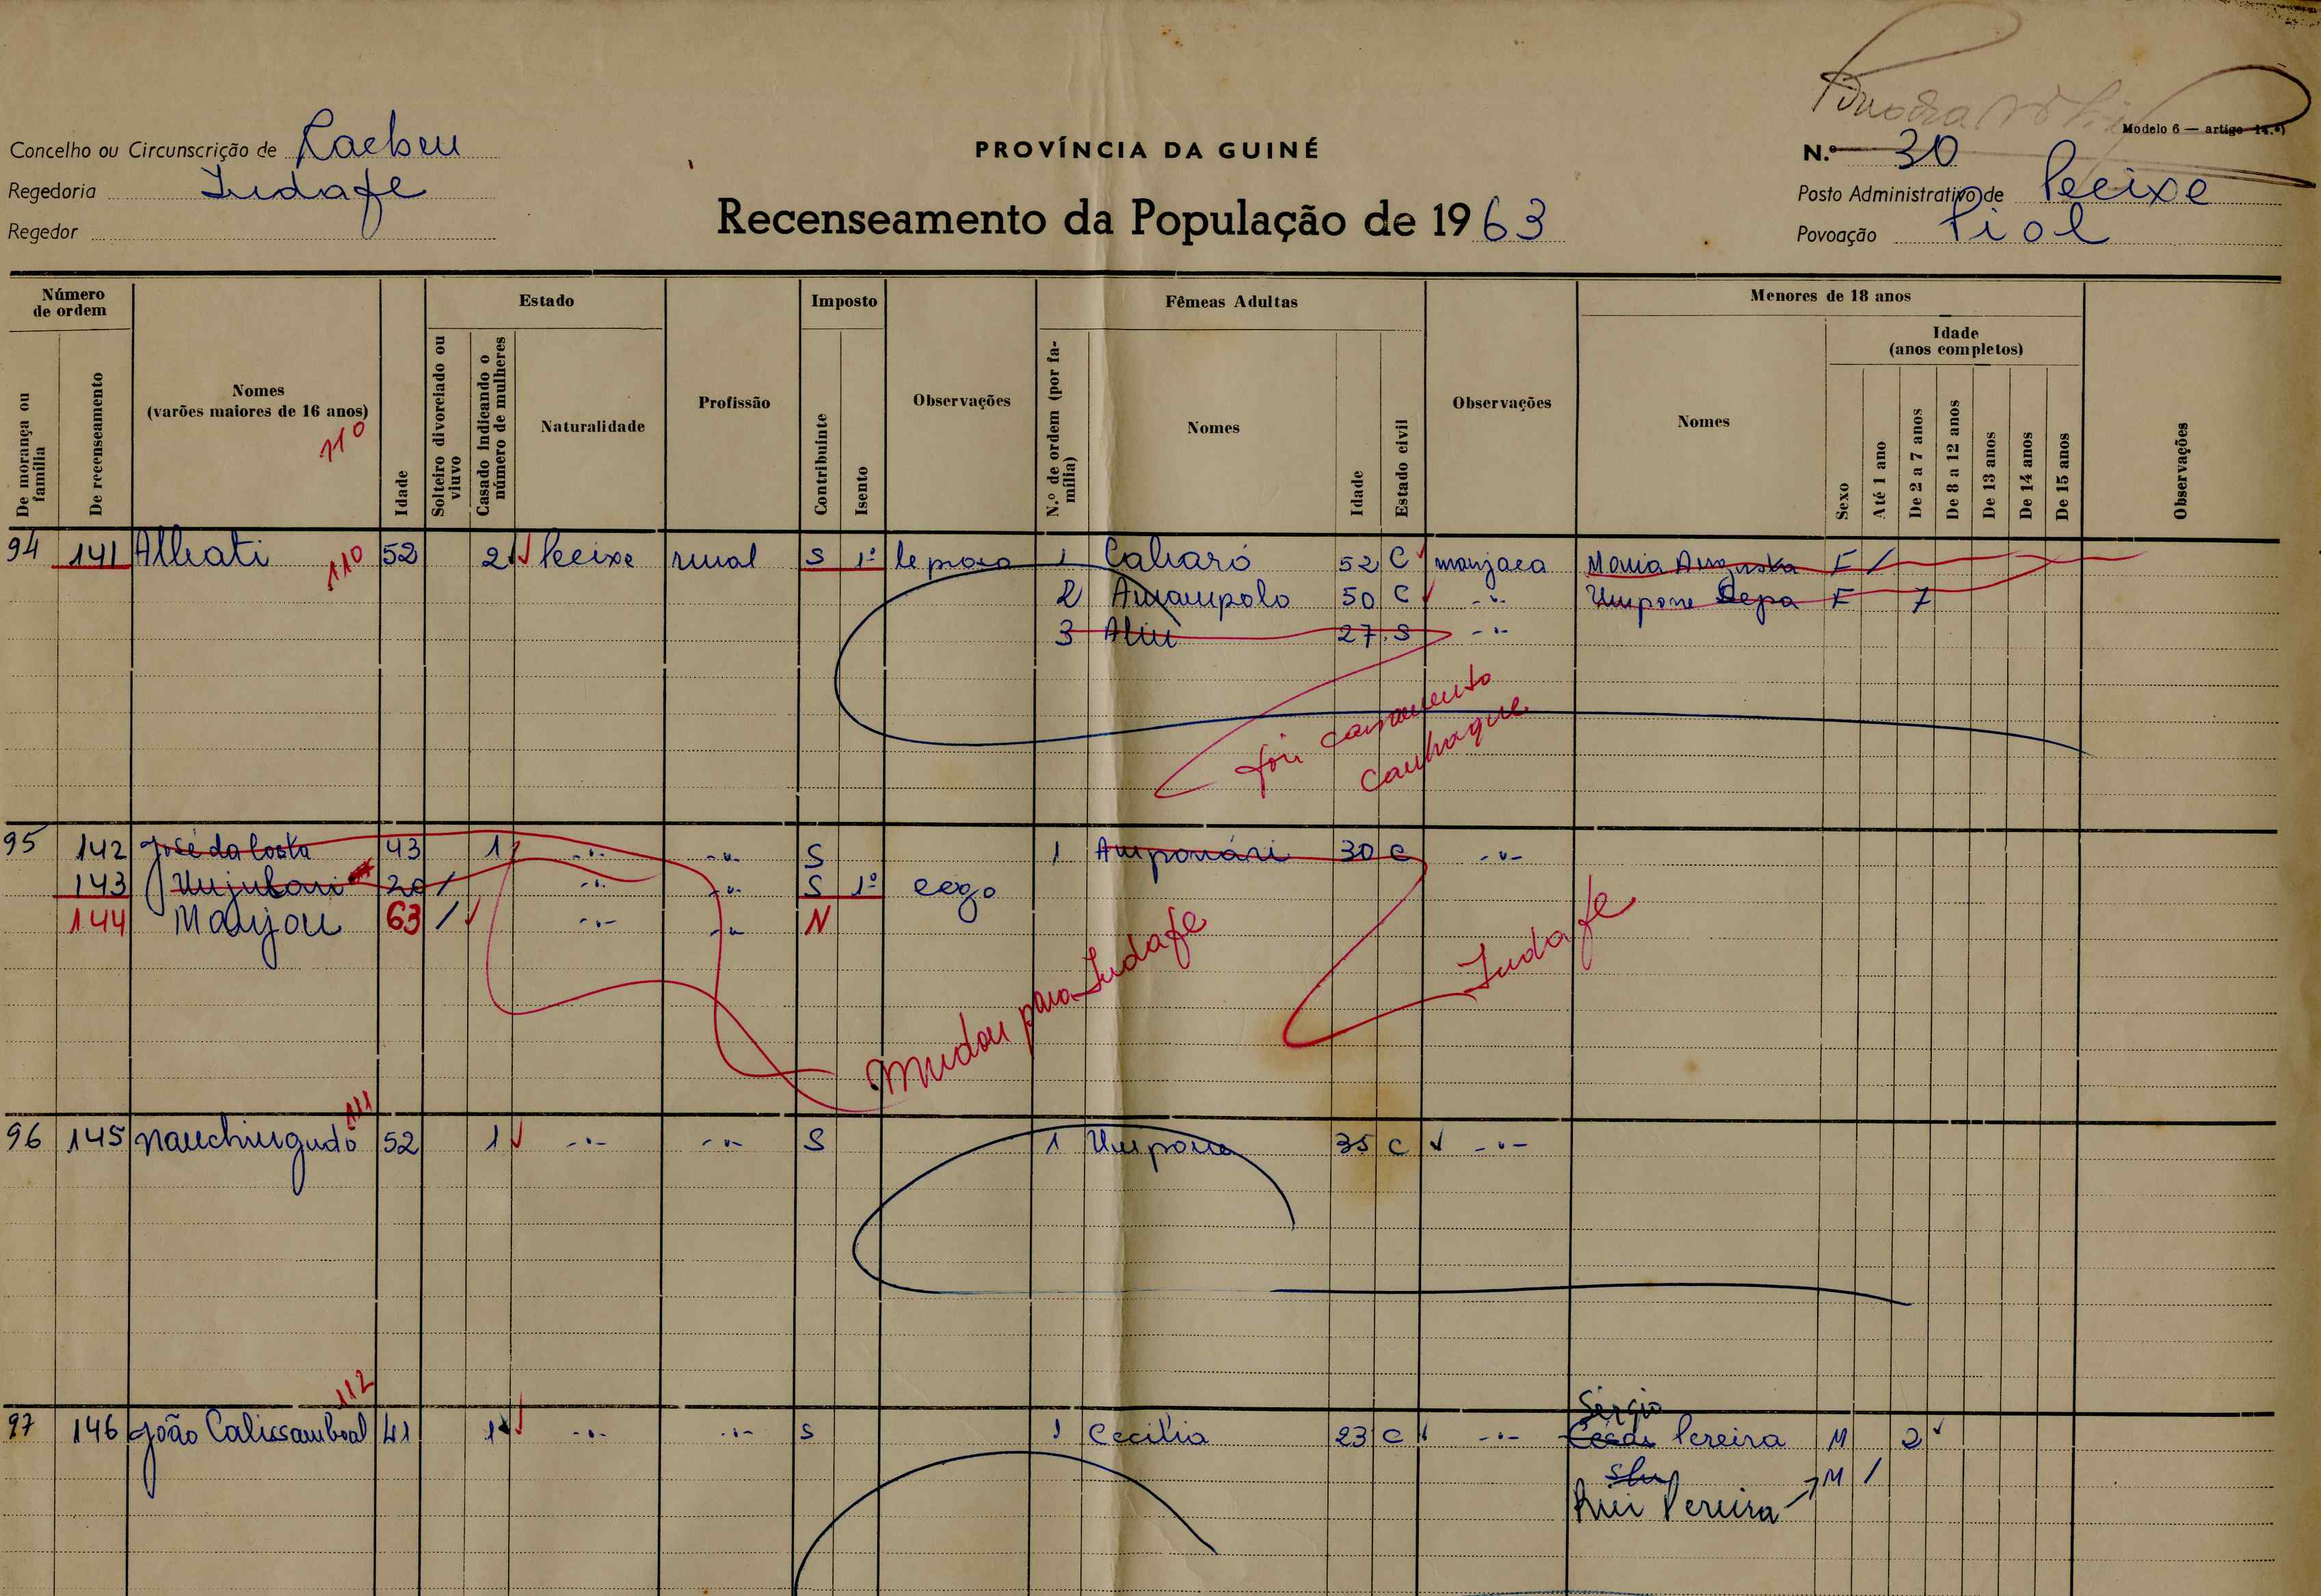 Modelo 6 — artigo 14.º)
Concelho ou Circunscrição de Cacheu
PROVÍNCIA DA GUINÉ
N.º 30
Regedoria Indafe
Recenseamento da População de 1963
Posto Administrativo de Pecixe
Regedor
Povoação Piol
Número de ordem
Estado
Imposto
Fêmeas Adultas
Menores de 18 anos
Idade
(anos completos)
De morança ou família
De recenseamento
Nomes
(varões maiores de 16 anos)
110
Idade
Solteiro divorciado ou viuvo
Casado indicando o número de mulheres
Naturalidade
Profissão
Contribuinte
Isento
Observações
N.º de ordem (por família)
Nomes
Idade
Estado civil
Observações
Nomes
Sexo
Até 1 ano
De 2 a 7 anos
De 8 a 12 anos
De 13 anos
De 14 anos
De 15 anos
Observações
94 141 110 52 2 Pecixe rural S 1º leprosa 1 Calharó 52 C manjaca Maria Augusta F /
2 Amampolo 50 C -"- Umpone F 7
3 27 S -"-
foi casamento
canhaque
95 142 José da Costa 43 1 -"- -"- S 1 Amponári 30 C -"-
143 20 / -"- -"- S 1º cego
144 Manjou 63 / -"- -"- N
Mudou para Indafe
Indafe
111
96 145 52 1 -"- -"- S 1 Umpona 35 C -"-
112
97 146 João Calissamboal 41 1 -"- -"- S 1 Cecilia 23 C -"- Sérgio Pereira M 2
M /
Rui Pereira